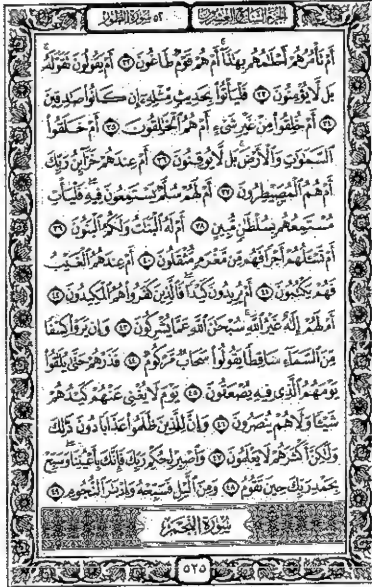 الجزء السابع والعشرون
٥٢ سورة الطور
أَمْ تَأْمُرُهُمْ أَحْلَٰمُهُم بِهَٰذَآ ۚ أَمْ هُمْ قَوْمٌ طَاغُونَ ٣٢ أَمْ يَقُولُونَ تَقَوَّلَهُۥ ۚ
بَل لَّا يُؤْمِنُونَ ٣٣ فَلْيَأْتُوا۟ بِحَدِيثٍ مِّثْلِهِۦٓ إِن كَانُوا۟ صَٰدِقِينَ
٣٤ أَمْ خُلِقُوا۟ مِنْ غَيْرِ شَىْءٍ أَمْ هُمُ ٱلْخَٰلِقُونَ ٣٥ أَمْ خَلَقُوا۟
ٱلسَّمَٰوَٰتِ وَٱلْأَرْضَ ۚ بَل لَّا يُوقِنُونَ ٣٦ أَمْ عِندَهُمْ خَزَآئِنُ رَبِّكَ
أَمْ هُمُ ٱلْمُصَۣيْطِرُونَ ٣٧ أَمْ لَهُمْ سُلَّمٌ يَسْتَمِعُونَ فِيهِ ۖ فَلْيَأْتِ
مُسْتَمِعُهُم بِسُلْطَٰنٍ مُّبِينٍ ٣٨ أَمْ لَهُ ٱلْبَنَٰتُ وَلَكُمُ ٱلْبَنُونَ ٣٩
أَمْ تَسْـَٔلُهُمْ أَجْرًا فَهُم مِّن مَّغْرَمٍ مُّثْقَلُونَ ٤٠ أَمْ عِندَهُمُ ٱلْغَيْبُ
فَهُمْ يَكْتُبُونَ ٤١ أَمْ يُرِيدُونَ كَيْدًا ۖ فَٱلَّذِينَ كَفَرُوا۟ هُمُ ٱلْمَكِيدُونَ ٤٢
أَمْ لَهُمْ إِلَٰهٌ غَيْرُ ٱللَّهِ ۚ سُبْحَٰنَ ٱللَّهِ عَمَّا يُشْرِكُونَ ٤٣ وَإِن يَرَوْا۟ كِسْفًا
مِّنَ ٱلسَّمَآءِ سَاقِطًا يَقُولُوا۟ سَحَابٌ مَّرْكُومٌ ٤٤ فَذَرْهُمْ حَتَّىٰ يُلَٰقُوا۟
يَوْمَهُمُ ٱلَّذِى فِيهِ يُصْعَقُونَ ٤٥ يَوْمَ لَا يُغْنِى عَنْهُمْ كَيْدُهُمْ
شَيْـًٔا وَلَا هُمْ يُنصَرُونَ ٤٦ وَإِنَّ لِلَّذِينَ ظَلَمُوا۟ عَذَابًا دُونَ ذَٰلِكَ
وَلَٰكِنَّ أَكْثَرَهُمْ لَا يَعْلَمُونَ ٤٧ وَٱصْبِرْ لِحُكْمِ رَبِّكَ فَإِنَّكَ بِأَعْيُنِنَا ۖ وَسَبِّحْ
بِحَمْدِ رَبِّكَ حِينَ تَقُومُ ٤٨ وَمِنَ ٱلَّيْلِ فَسَبِّحْهُ وَإِدْبَٰرَ ٱلنُّجُومِ ٤٩
سورة النجم
٥٢٥